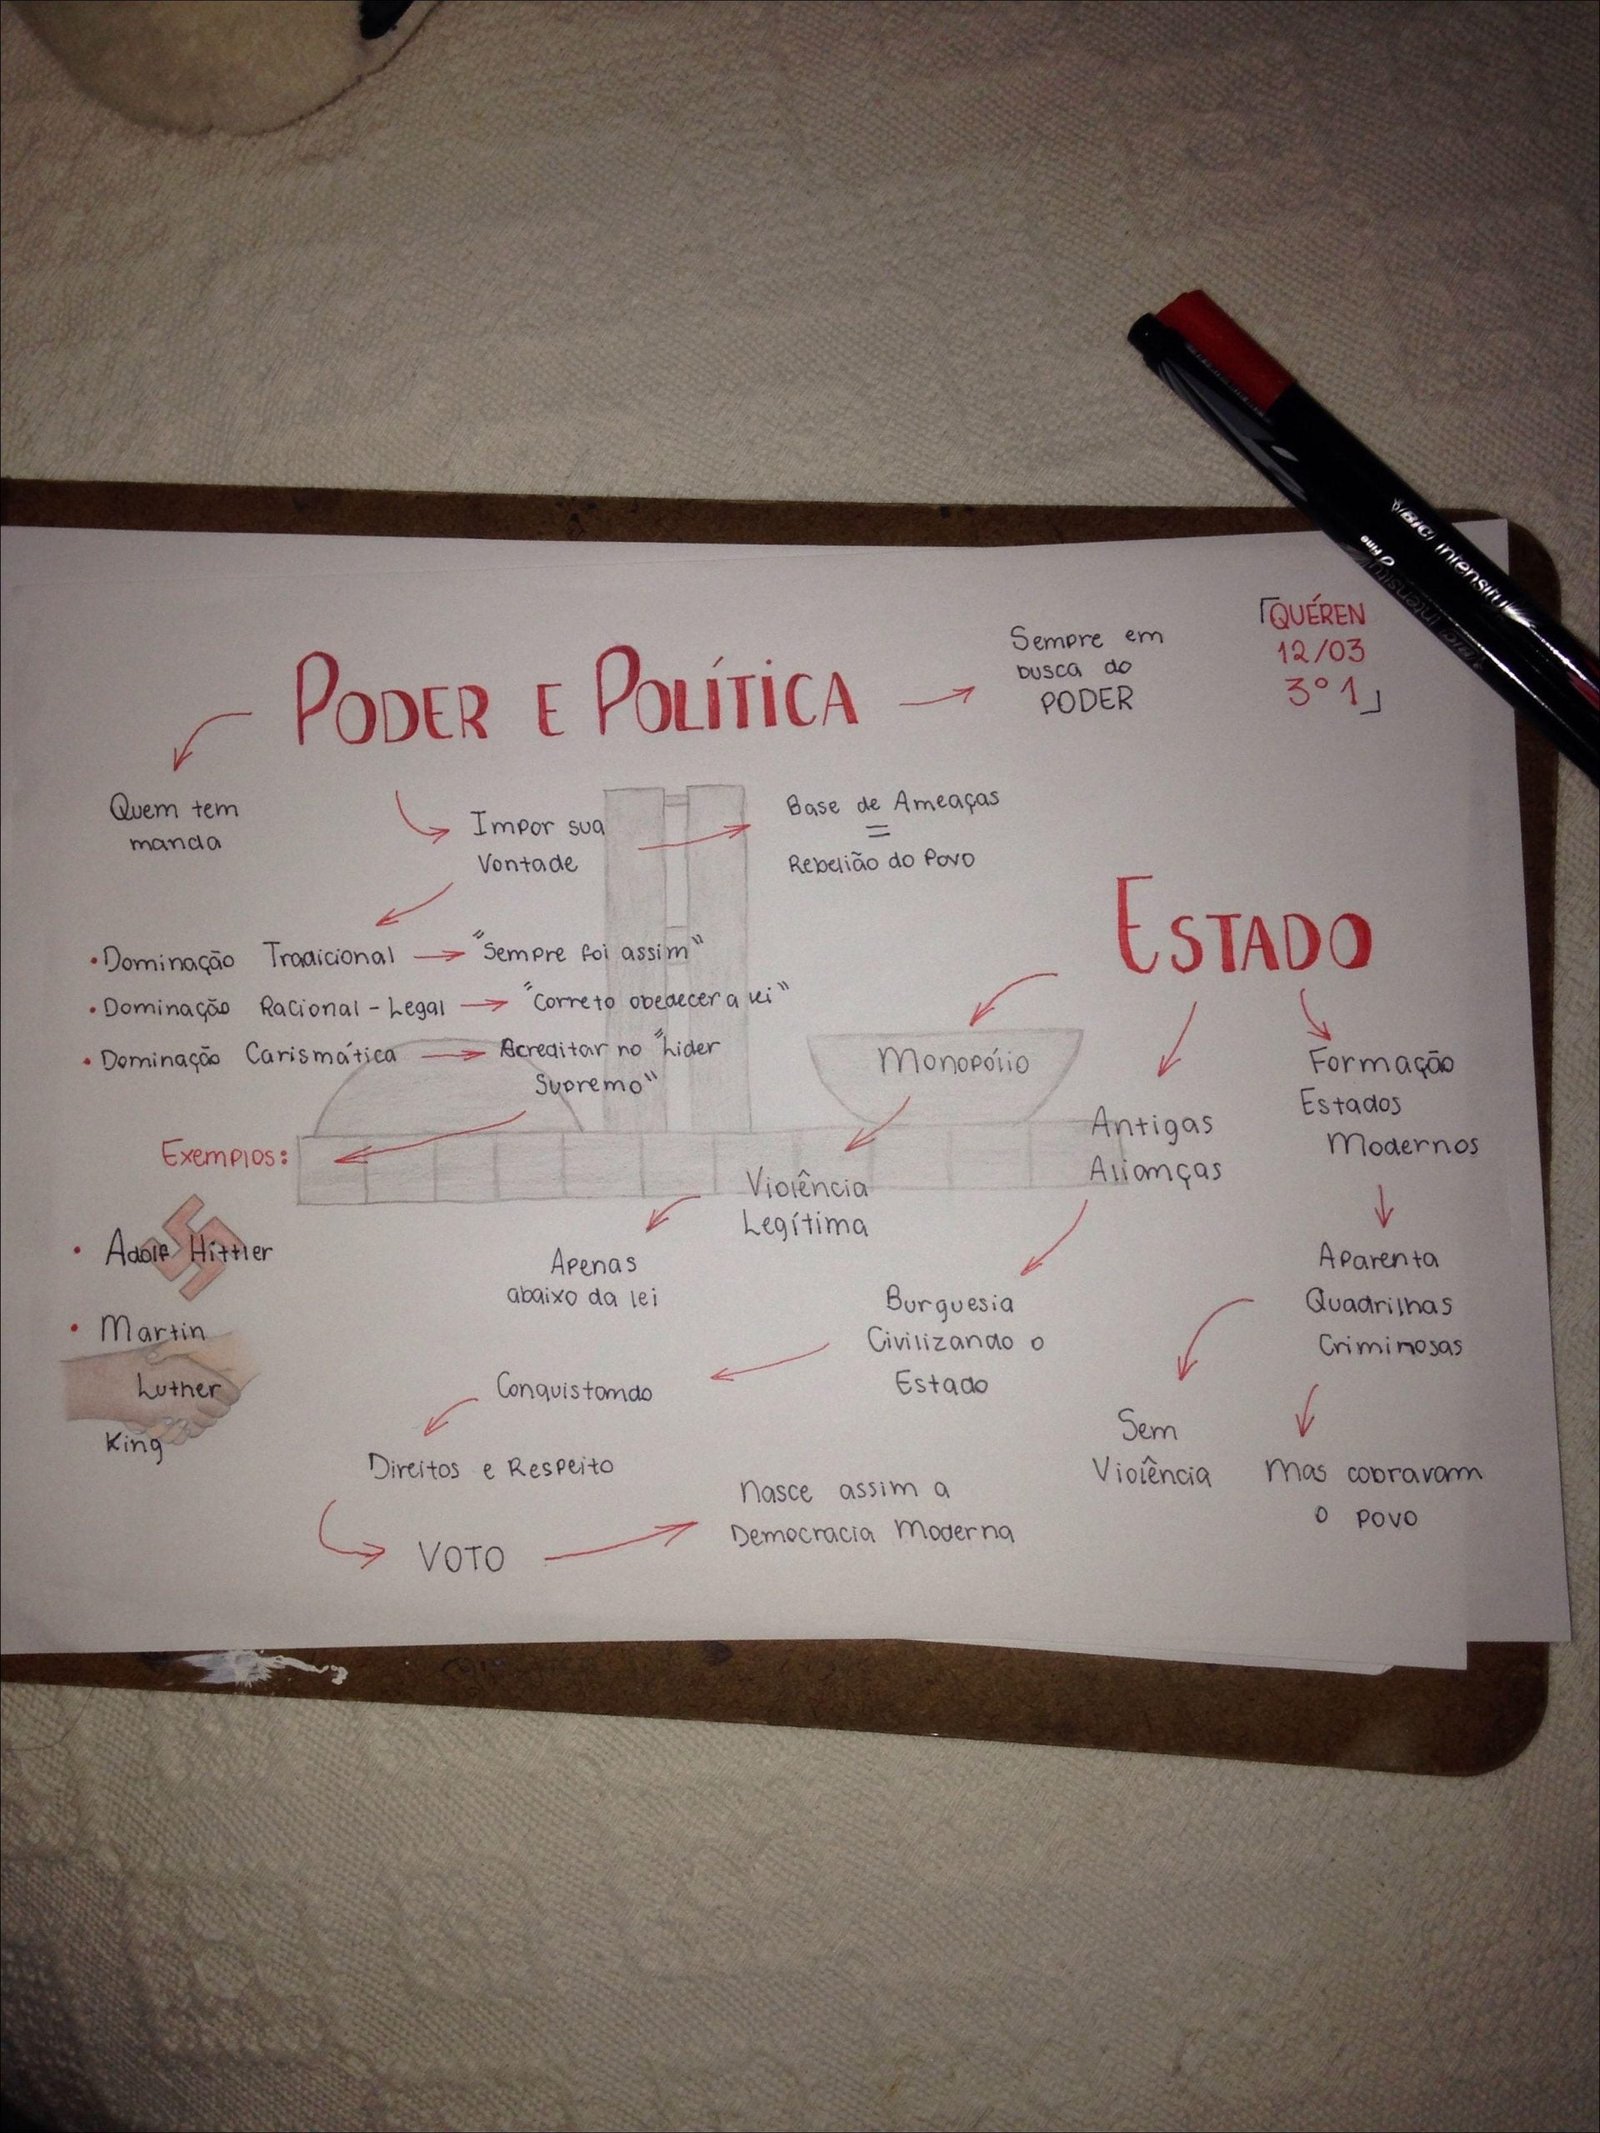 PODER E POLÍTICA
Sempre em
busca do
PODER
QUÉREN
12/03
3º 1
Quem tem
manda
Impor sua
Vontade
Base de Ameaças
=
Rebelião do Povo
• Dominação Tradicional "Sempre foi assim"
• Dominação Racional-Legal "Correto obedecer a lei"
• Dominação Carismática Acreditar no "Lider
Supremo"
Exemplos:
• Adolf Hittler
• Martin
Luther
King
ESTADO
Monopólio
Violência
Legítima
Apenas
abaixo da lei
Antigas
Alianças
Burguesia
Civilizando o
Estado
Conquistando
Direitos e Respeito
VOTO
Nasce assim a
Democracia Moderna
Formação
Estados
Modernos
Aparenta
Quadrilhas
Criminosas
Sem
Violência
Mas cobravam
o povo
BIC intensity
Fine